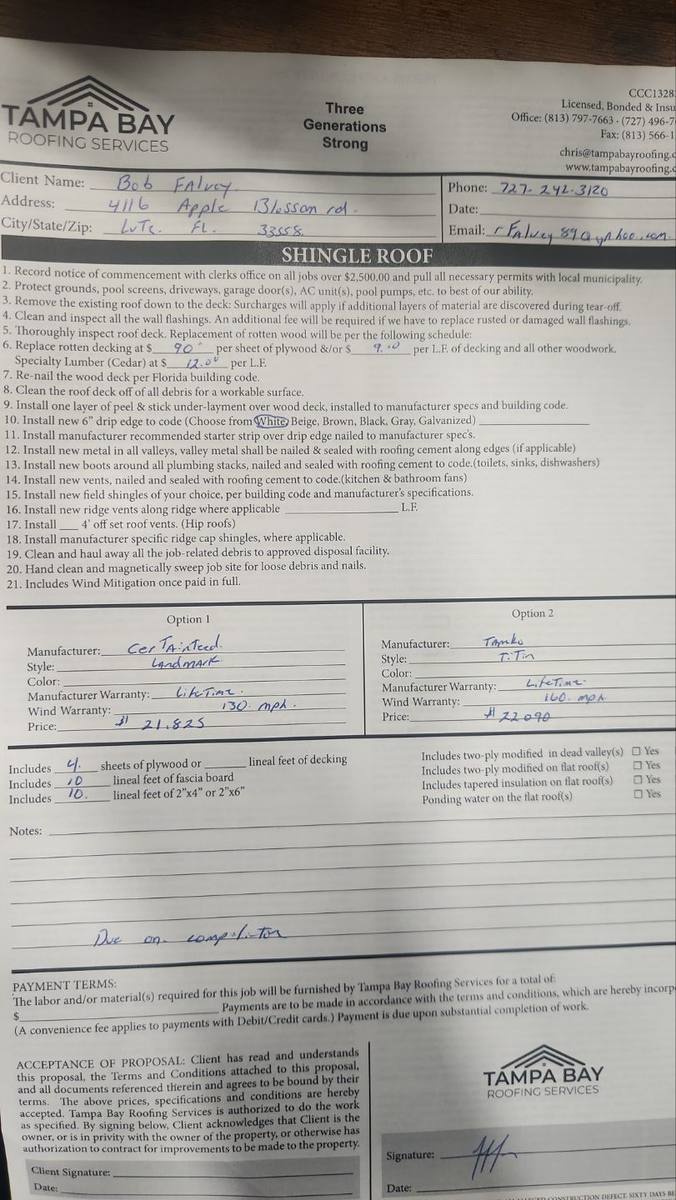 TAMPA BAY
ROOFING SERVICES
Three
Generations
Strong
CCC1328
Licensed, Bonded & Insu
Office: (813) 797-7663 · (727) 496-7
Fax: (813) 566-1
chris@tampabayroofing.c
www.tampabayroofing.c
Client Name: Bob Falvey
Address: 4116 Apple Blossom rd.
City/State/Zip: LuTz. FL. 33558
Phone: 727-242-3120
Date:
Email: rFalvey89@yahoo.com
SHINGLE ROOF
1. Record notice of commencement with clerks office on all jobs over $2,500.00 and pull all necessary permits with local municipality.
2. Protect grounds, pool screens, driveways, garage door(s), AC unit(s), pool pumps, etc. to best of our ability.
3. Remove the existing roof down to the deck: Surcharges will apply if additional layers of material are discovered during tear-off.
4. Clean and inspect all the wall flashings. An additional fee will be required if we have to replace rusted or damaged wall flashings.
5. Thoroughly inspect roof deck. Replacement of rotten wood will be per the following schedule:
6. Replace rotten decking at $ 90 per sheet of plywood &/or $ 9.00 per L.F. of decking and all other woodwork.
Specialty Lumber (Cedar) at $ 12.00 per L.F.
7. Re-nail the wood deck per Florida building code.
8. Clean the roof deck off of all debris for a workable surface.
9. Install one layer of peel & stick under-layment over wood deck, installed to manufacturer specs and building code.
10. Install new 6" drip edge to code (Choose from White, Beige, Brown, Black, Gray, Galvanized)
11. Install manufacturer recommended starter strip over drip edge nailed to manufacturer spec's.
12. Install new metal in all valleys, valley metal shall be nailed & sealed with roofing cement along edges (if applicable)
13. Install new boots around all plumbing stacks, nailed and sealed with roofing cement to code.(toilets, sinks, dishwashers)
14. Install new vents, nailed and sealed with roofing cement to code.(kitchen & bathroom fans)
15. Install new field shingles of your choice, per building code and manufacturer's specifications.
16. Install new ridge vents along ridge where applicable L.F.
17. Install ___ 4' off set roof vents. (Hip roofs)
18. Install manufacturer specific ridge cap shingles, where applicable.
19. Clean and haul away all the job-related debris to approved disposal facility.
20. Hand clean and magnetically sweep job site for loose debris and nails.
21. Includes Wind Mitigation once paid in full.
Option 1
Manufacturer: CerTAinTeed
Style: LANDMARK
Color:
Manufacturer Warranty: LifeTime.
Wind Warranty: 130. mph.
Price: $ 21,825
Option 2
Manufacturer: Tamko
Style: TiTan
Color:
Manufacturer Warranty: LifeTime
Wind Warranty: 160. mph
Price: $ 22090
Includes 4. sheets of plywood or ___ lineal feet of decking
Includes 10 lineal feet of fascia board
Includes 10. lineal feet of 2"x4" or 2"x6"
Includes two-ply modified in dead valley(s) ☐ Yes
Includes two-ply modified on flat roof(s) ☐ Yes
Includes tapered insulation on flat roof(s) ☐ Yes
Ponding water on the flat roof(s) ☐ Yes
Notes:
Due on completion
PAYMENT TERMS:
The labor and/or material(s) required for this job will be furnished by Tampa Bay Roofing Services for a total of:
$ Payments are to be made in accordance with the terms and conditions, which are hereby incorp
(A convenience fee applies to payments with Debit/Credit cards.) Payment is due upon substantial completion of work.
ACCEPTANCE OF PROPOSAL: Client has read and understands
this proposal, the Terms and Conditions attached to this proposal,
and all documents referenced therein and agrees to be bound by their
terms. The above prices, specifications and conditions are hereby
accepted. Tampa Bay Roofing Services is authorized to do the work
as specified. By signing below, Client acknowledges that Client is the
owner, or is in privity with the owner of the property, or otherwise has
authorization to contract for improvements to be made to the property.
Client Signature:
Date:
TAMPA BAY
ROOFING SERVICES
Signature:
Date:
CONSTRUCTION DEFECT. SIXTY DAYS BE